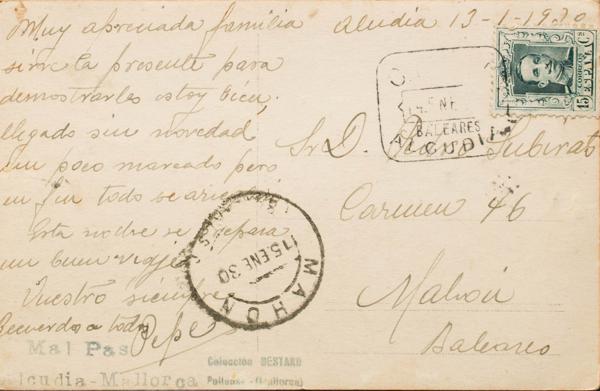 Muy apreciada familia
sirve la presente para
demostrarles estoy bien,
llegado sin novedad
un poco mareado pero
en fin todo se
Esta noche se prepara
un buen viaje
Vuestro siempre
Recuerdos a todos
Pepe
Mal Pas
alcudia-Mallorca
Colección BESTARD
Pollensa-(Mallorca)
alcudia 13-1-1930
CORREOS
ESPAÑA
15 Cs
ENE
BALEARES
ALCUDIA
Sr. D. Subirats
Carmen 46
Mahón
Baleares
15 ENE 30
MAHON